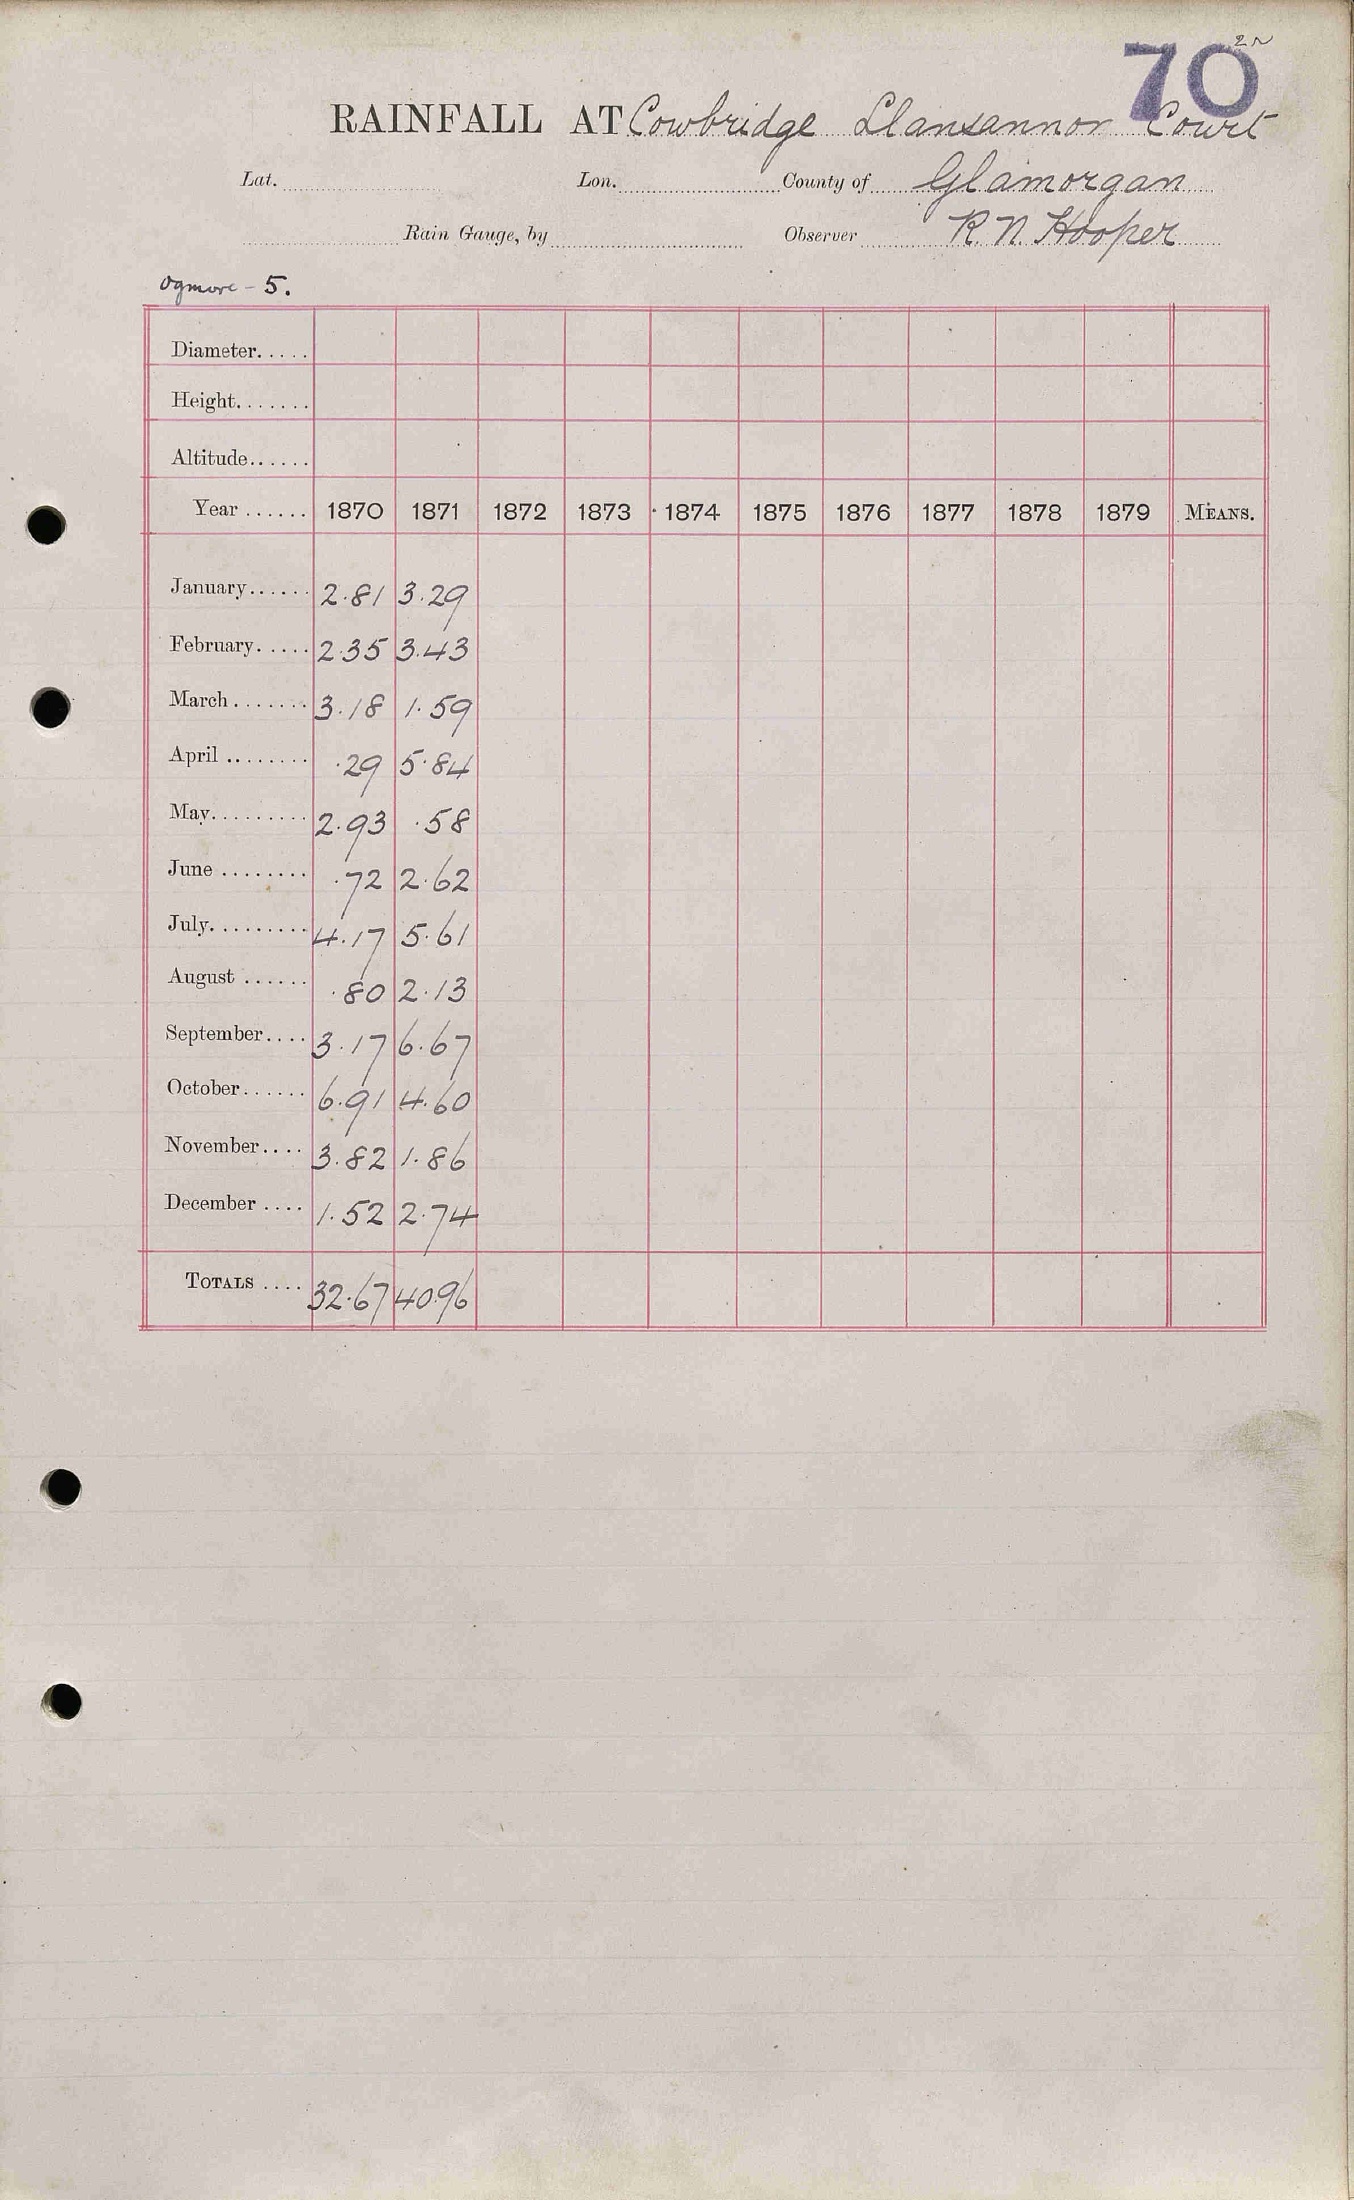 70 2N
RAINFALL AT Cowbridge Llansannor Court
Lat. Lon. County of Glamorgan
Rain Gauge, by Observer R. N. Hooper
Ogmore - 5.
Diameter.....
Height.......
Altitude......
Year ...... 1870 1871 1872 1873 1874 1875 1876 1877 1878 1879 MEANS.
January...... 2.81 3.29
February..... 2.35 3.43
March....... 3.18 1.59
April ........ .29 5.84
May......... 2.93 .58
June ........ .72 2.62
July......... 4.17 5.61
August ...... .80 2.13
September.... 3.17 6.67
October...... 6.91 4.60
November.... 3.82 1.86
December .... 1.52 2.74
TOTALS .... 32.67 40.96